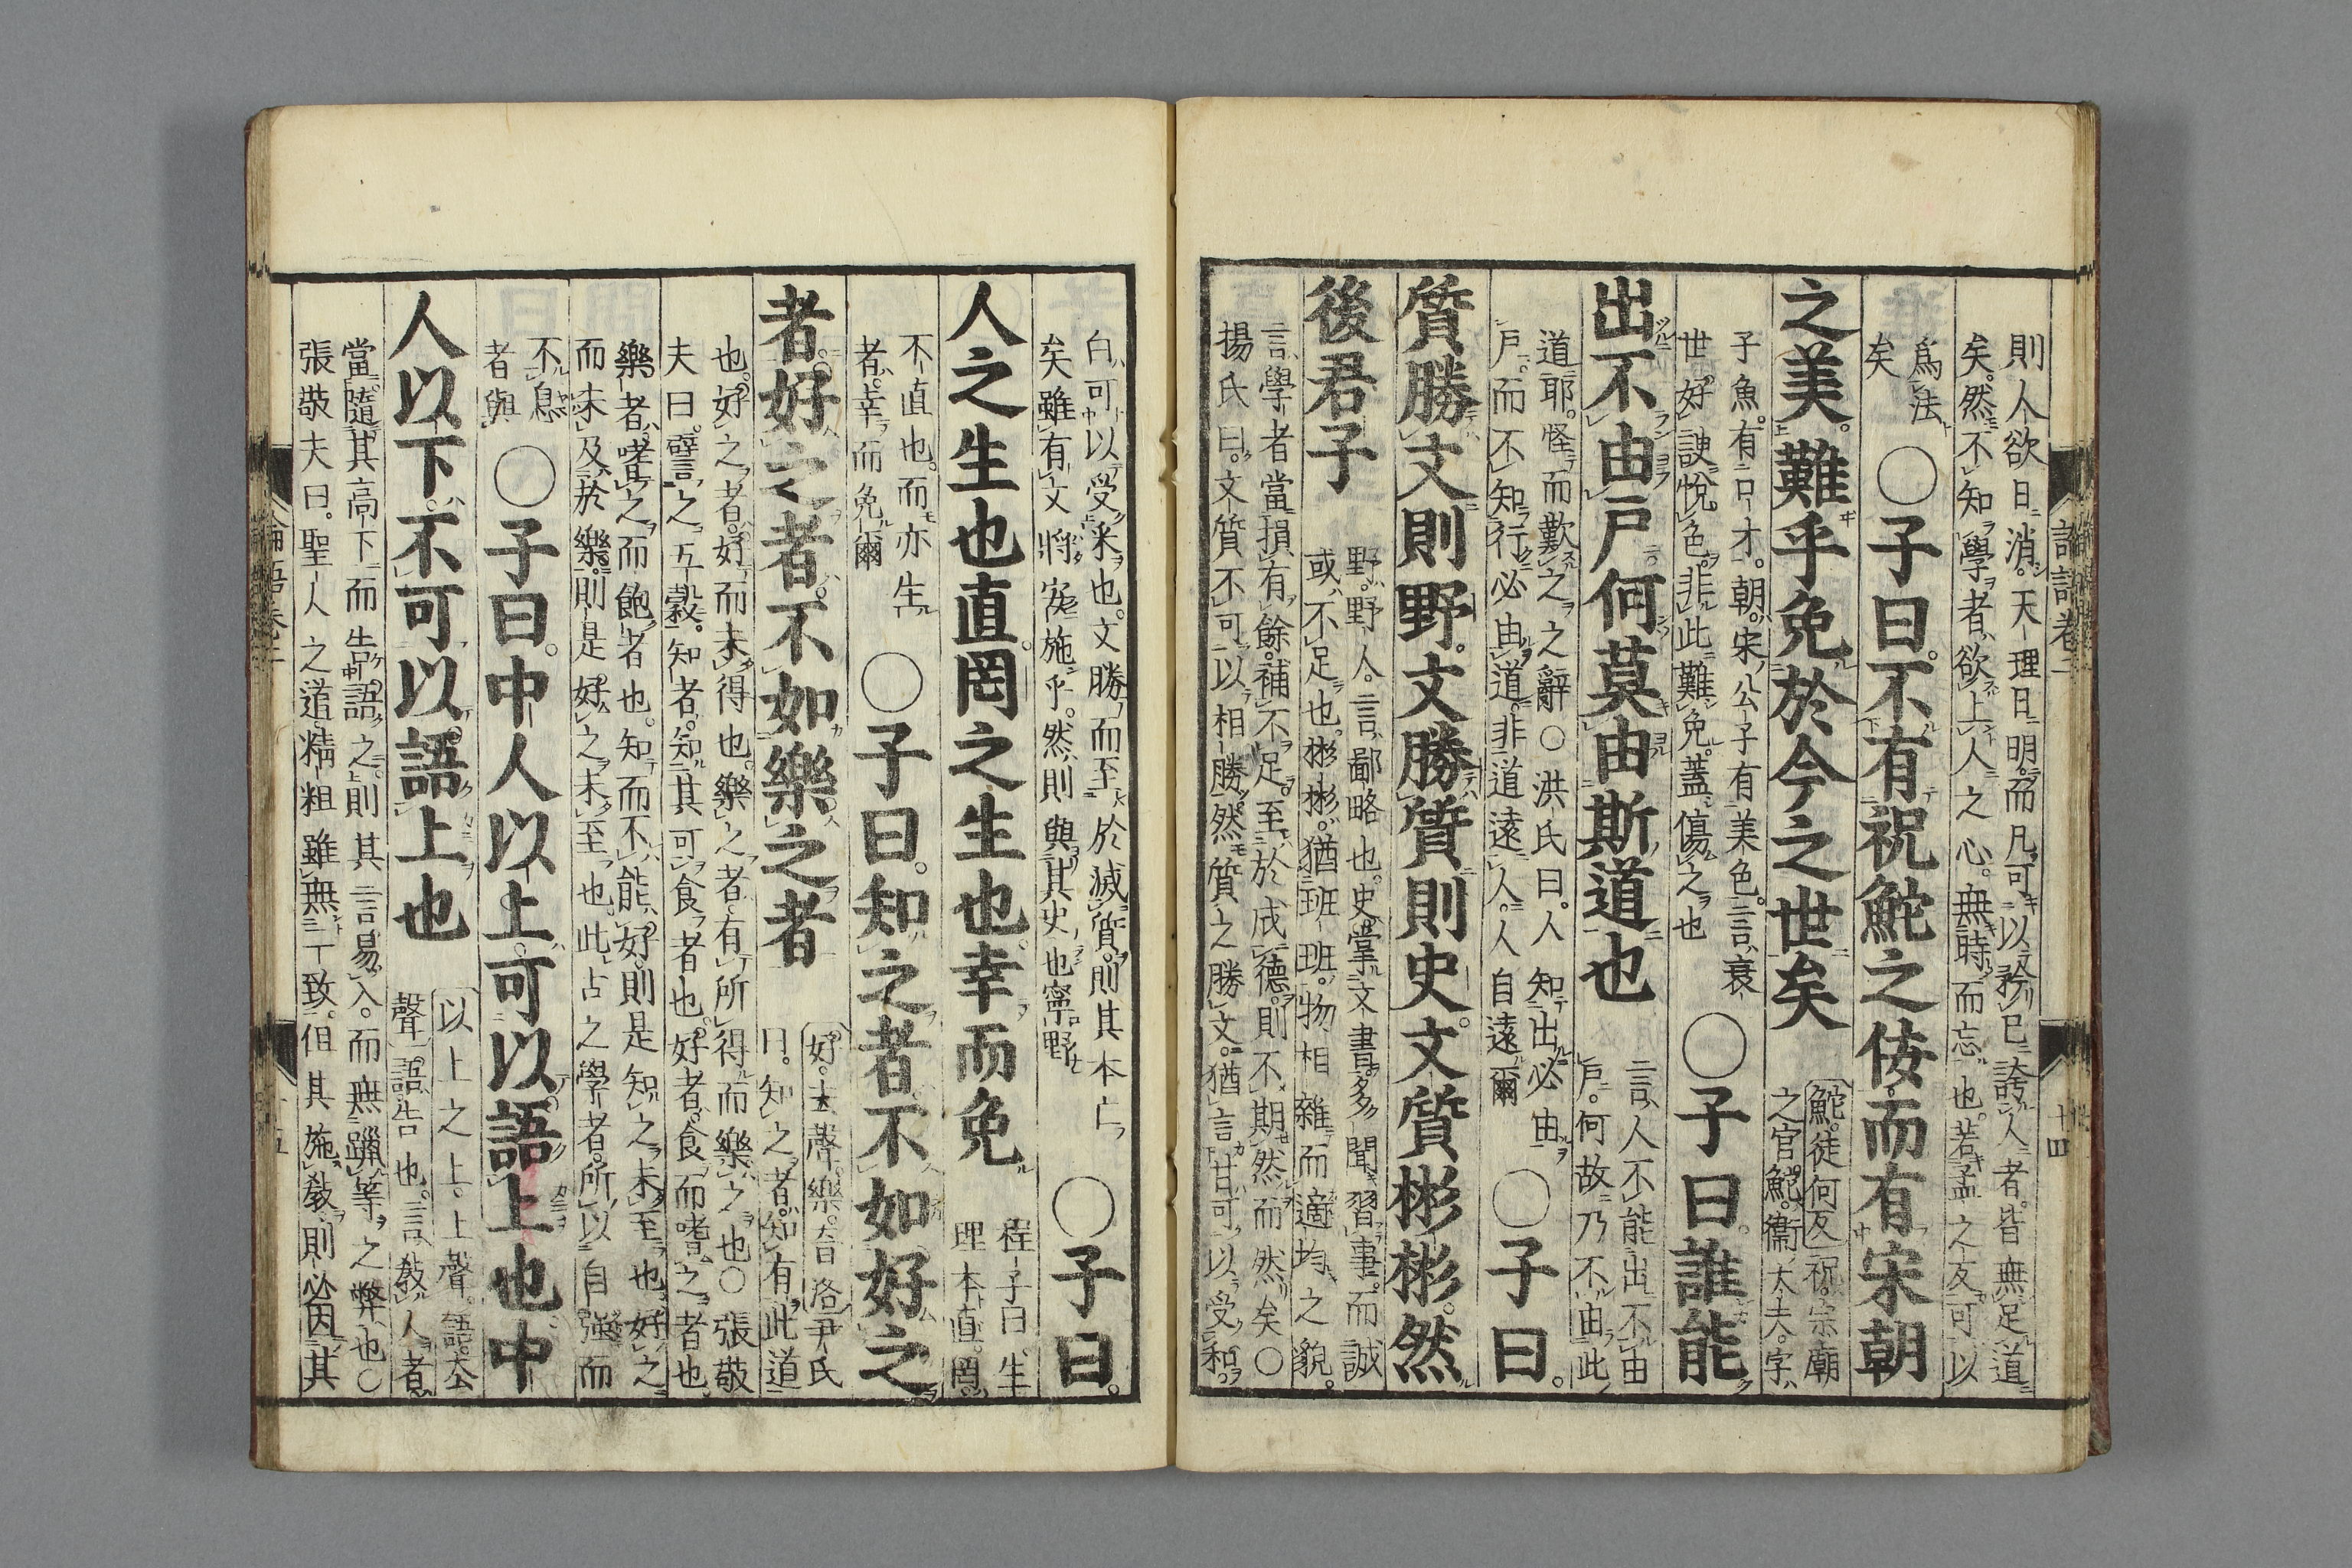 則人欲日消。天理日明。而凡可以矜己誇人者。皆無足道
矣。然不知學者。欲上人之心。無時而忘也。若孟之反可以
爲法
矣
○子曰。不有祝鮀之佞。而有宋朝
鮀。徒何反。祝。宗廟
之官。鮀。衞大夫。字
之美。難乎免於今之世矣
子魚。有口才。朝。宋公子。有美色。言衰
世好諛悅色。非此難免。蓋傷之也
○子曰。誰能
出不由戶。何莫由斯道也
言人不能出不由
戶。何故乃不由此
道耶。怪而歎之之辭○洪氏曰。人知出必由
戶。而不知行必由道。非道遠人。人自遠爾
○子曰。
質勝文則野。文勝質則史。文質彬彬。然
後君子
野。野人。言鄙略也。史掌文書。多聞習事。而誠
或不足也。彬彬。猶班班。物相雜而適均之貌。
言學者當損有餘。補不足。至於成德。則不期然而然矣○
揚氏曰。文質不可以相勝。然質之勝文。猶言甘可以受和。
論語卷三
十四
白可以受采也。文勝而至於滅質。則其本亡
矣。雖有文。將安施乎。然則與其史也寧野
○子曰。
人之生也直。罔之生也幸而免
程子曰。生
理本直。罔。
不直也。而亦生
者。幸而免爾
○子曰。知之者不如好之
者。好之者。不如樂之者
好。去聲。樂。音洛○尹氏
曰。知之者。知有此道
也。好之者。好而未得也。樂之者。有所得而樂之也○張敬
夫曰。譬之五穀。知者。知其可食者也。好者。食而嗜之者也。
樂者。嗜之而飽者也。知而不能好。則是知之未至也。好之
而未及於樂。則是好之未至也。此古之學者。所以自強而
不息
者與
○子曰。中人以上。可以語上也。中
人以下。不可以語上也
以上之上。上聲。語。去
聲。語。告也。言教人者。
當隨其高下。而告語之。則其言易入。而無躐等之弊也○
張敬夫曰。聖人之道。精粗雖無二致。但其施教。則必因其
論語卷三